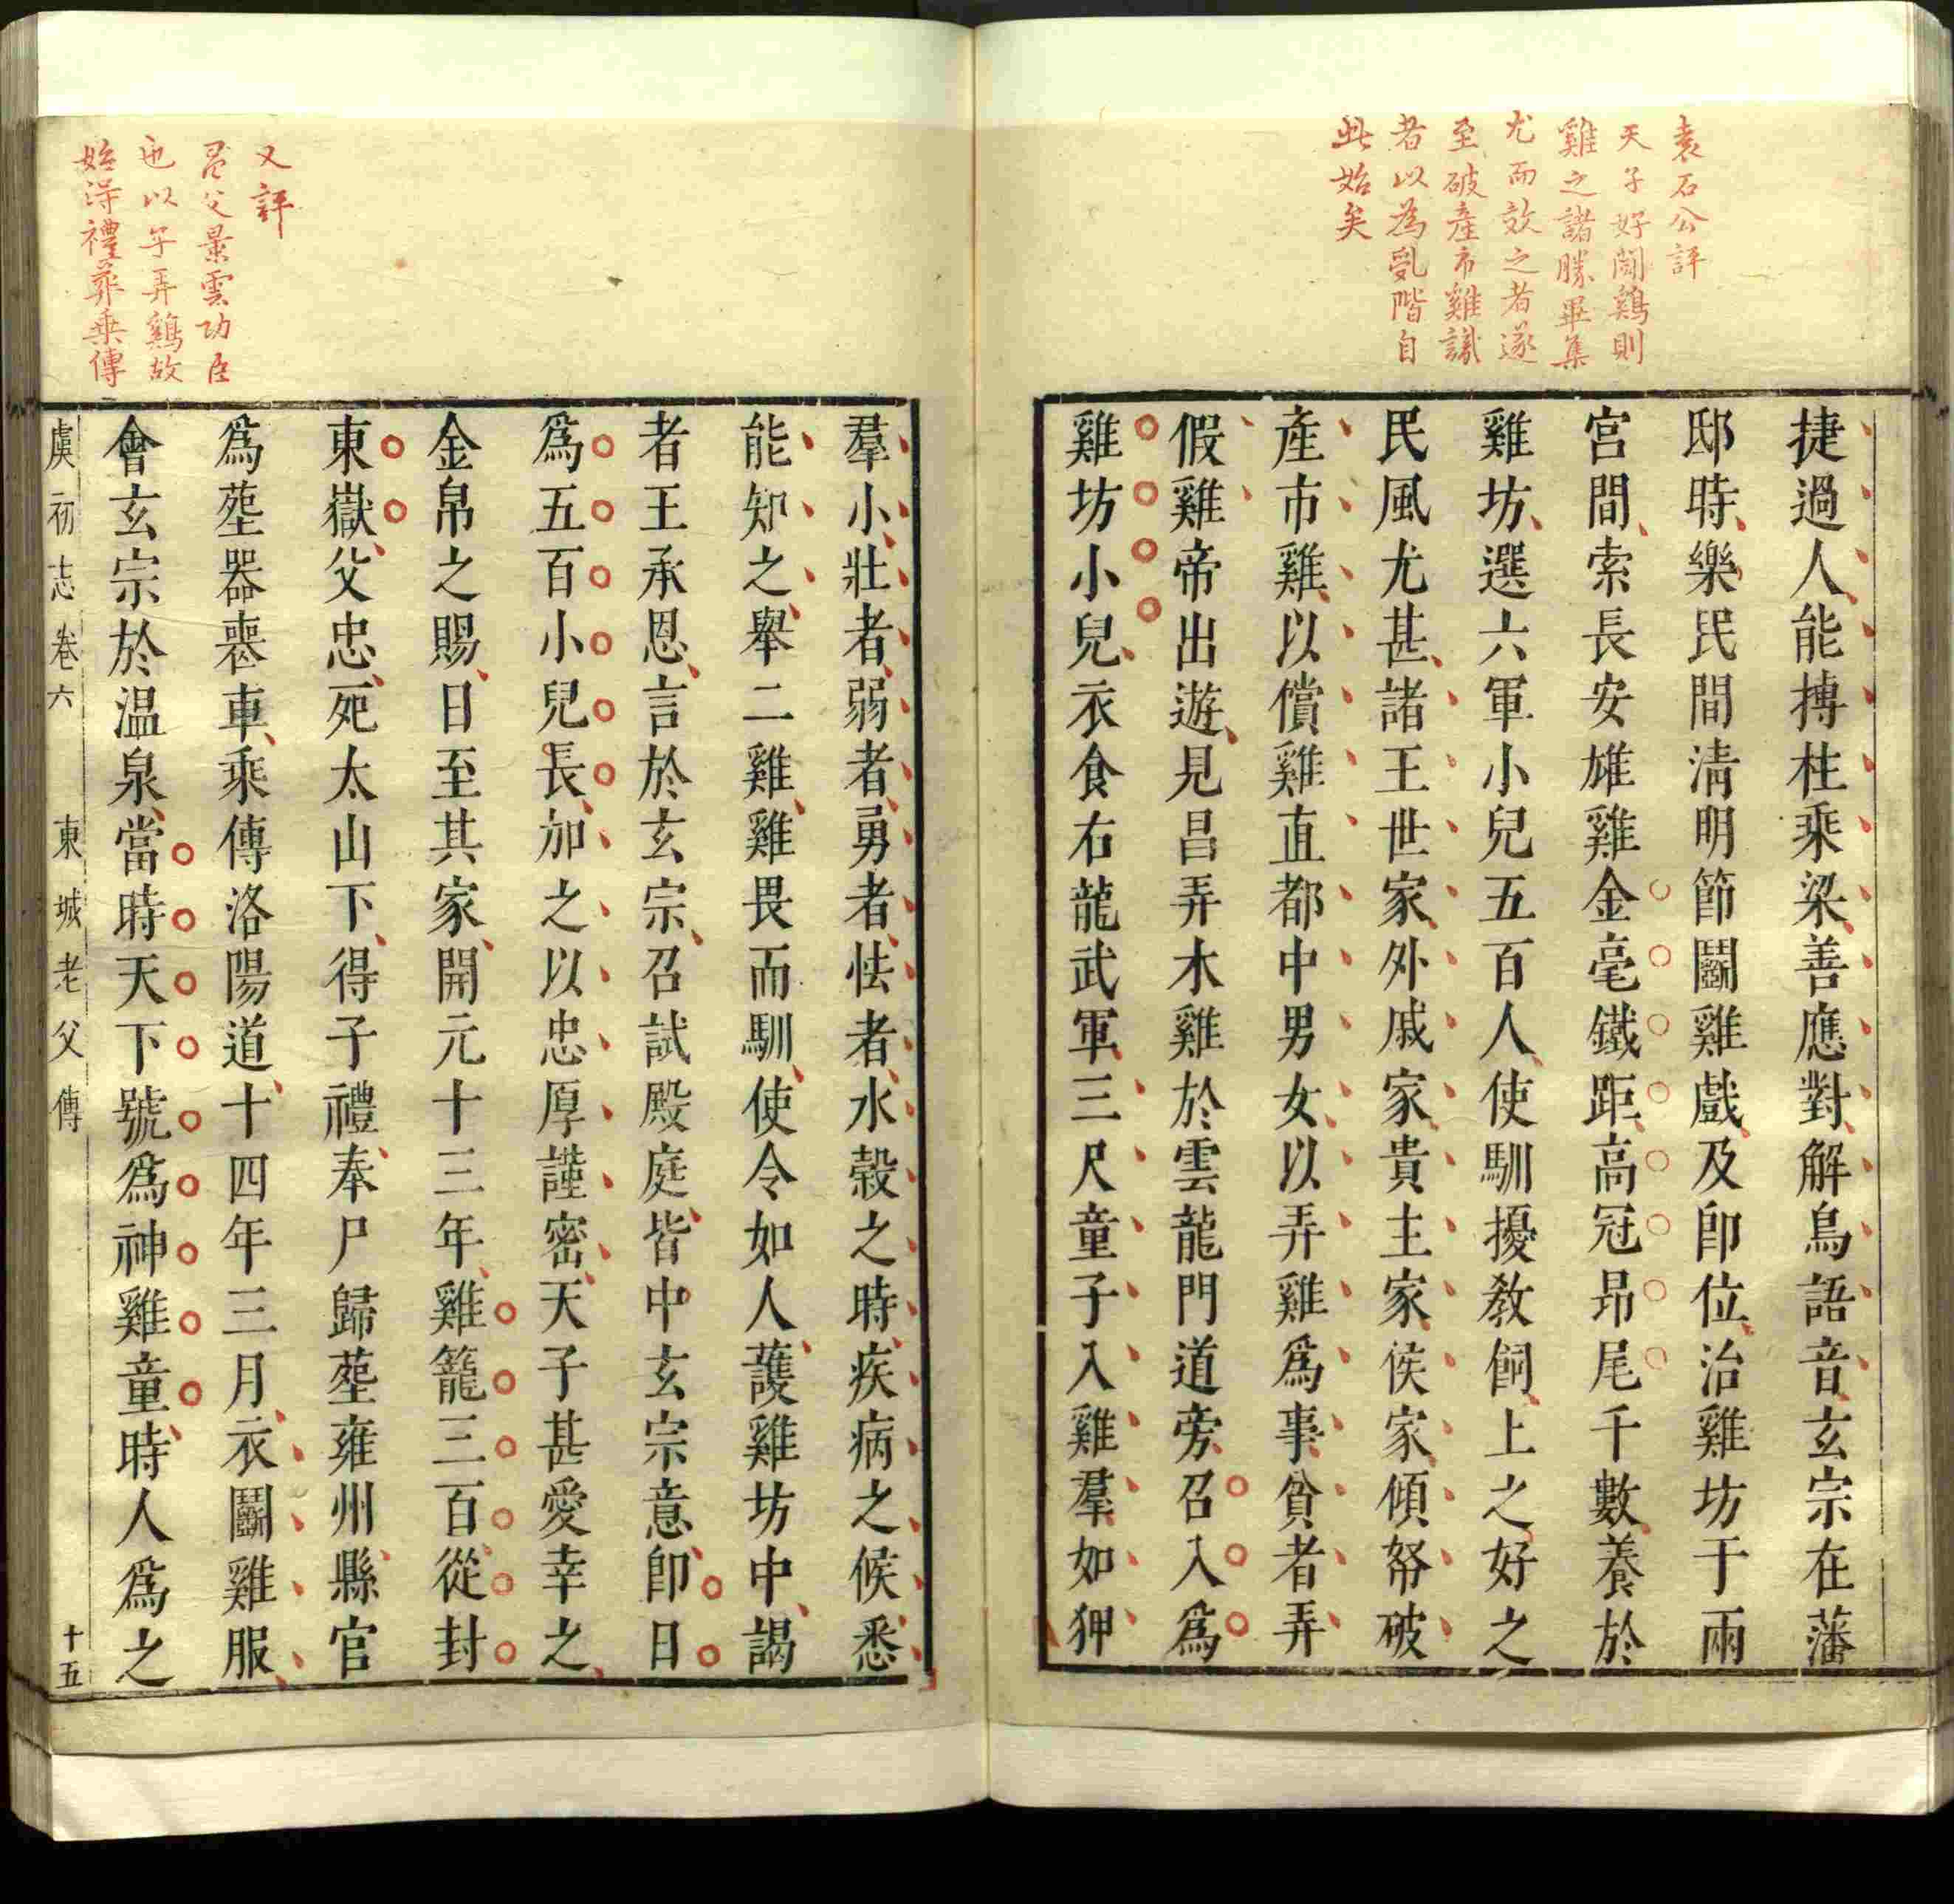 袁石公評
天子好鬬鷄則
雞之諸勝畢集
尤而效之者遂
至破產市雞識
者以為亂階自
此始矣
捷過人能搏柱乘梁善應對解鳥語音玄宗在藩
邸時樂民間淸明節鬭雞戲及卽位治雞坊于兩
宮間索長安雄雞金毫鐵距高冠昂尾千數養於
雞坊選六軍小兒五百人使馴擾敎飼上之好之
民風尤甚諸王世家外戚家貴主家侯家傾帑破
產市雞以償雞直都中男女以弄雞爲事貧者弄
假雞帝出遊見昌弄木雞於雲龍門道旁召入爲
雞坊小兒衣食右龍武軍三尺童子入雞羣如狎
又評
昌父景雲功臣
也以子弄鷄故
始得禮葬乗傳
羣小壯者弱者勇者怯者水穀之時疾病之候悉
能知之舉二雞雞畏而馴使令如人護雞坊中謁
者王承恩言於玄宗召試殿庭皆中玄宗意卽日
爲五百小兒長加之以忠厚謹密天子甚愛幸之
金帛之賜日至其家開元十三年雞籠三百從封
東嶽父忠死太山下得子禮奉尸歸塟雍州縣官
爲塟器喪車乘傳洛陽道十四年三月衣鬭雞服
會玄宗於温泉當時天下號爲神雞童時人爲之
虞初志 卷六 東城老父傳 十五